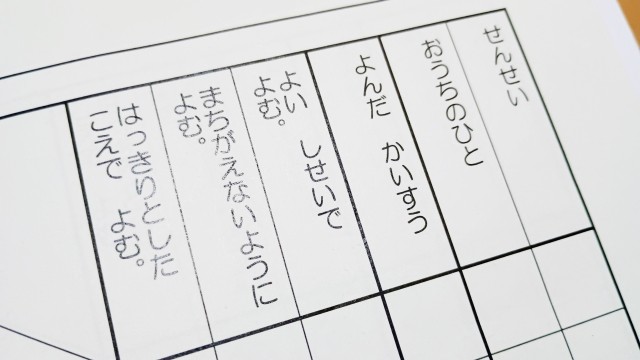 せんせい
おうちのひと
よんだ　かいすう
よい　しせいで
よむ。
まちがえないように
よむ。
はっきりとした
こえで　よむ。